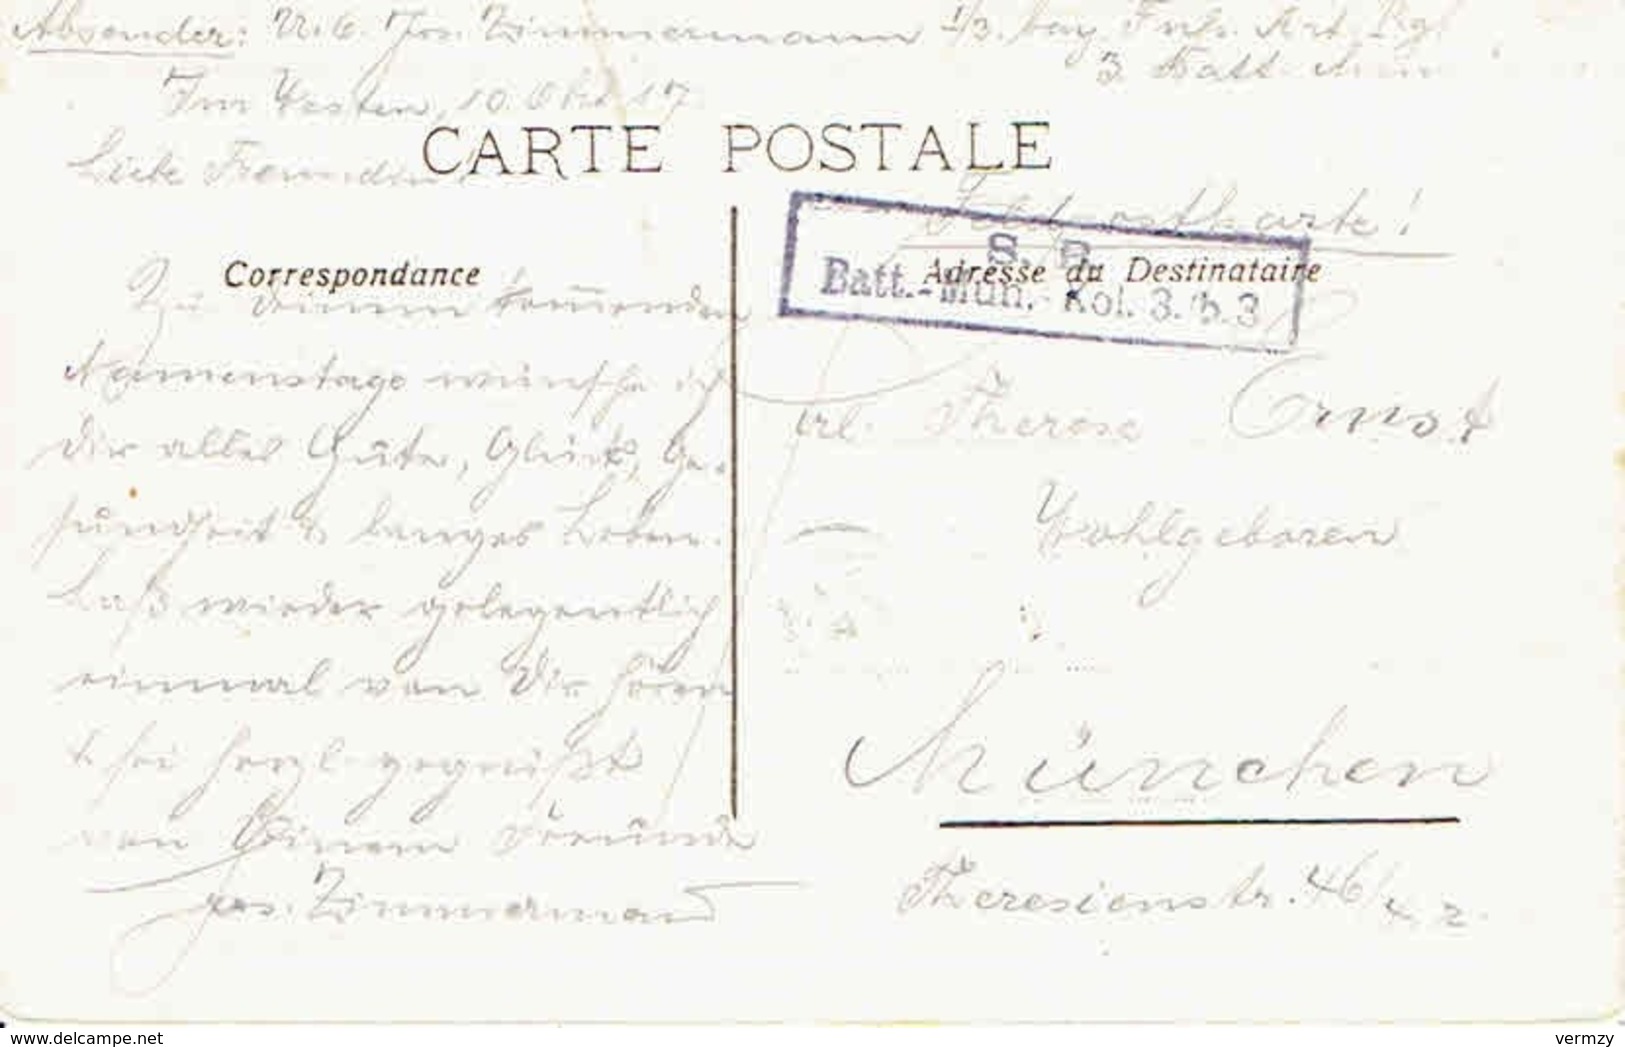 Absender: U.O. Jos. Zimmermann 1/3. bay Fuß. Art. Rgt.
3. Batt.
Im Westen, 10. Okt. 17.
Liebe Freundin!
CARTE POSTALE
Feldpostkarte!
S. B.
Batt.-Mun. Kol. 3./b.3
Correspondance
Adresse du Destinataire
Zu Deinem kommenden
Namenstage wünsche ich
Dir alles Gute, Glück, Ge-
sundheit & langes Leben.
Laß wieder gelegentlich
einmal von Dir hören
& sei herzl. gegrüßt
von Deinem Freunde
Jos. Zimmermann
Frl. Therese Ernst
Wohlgeboren
München
Theresienstr. 46/
vermzy